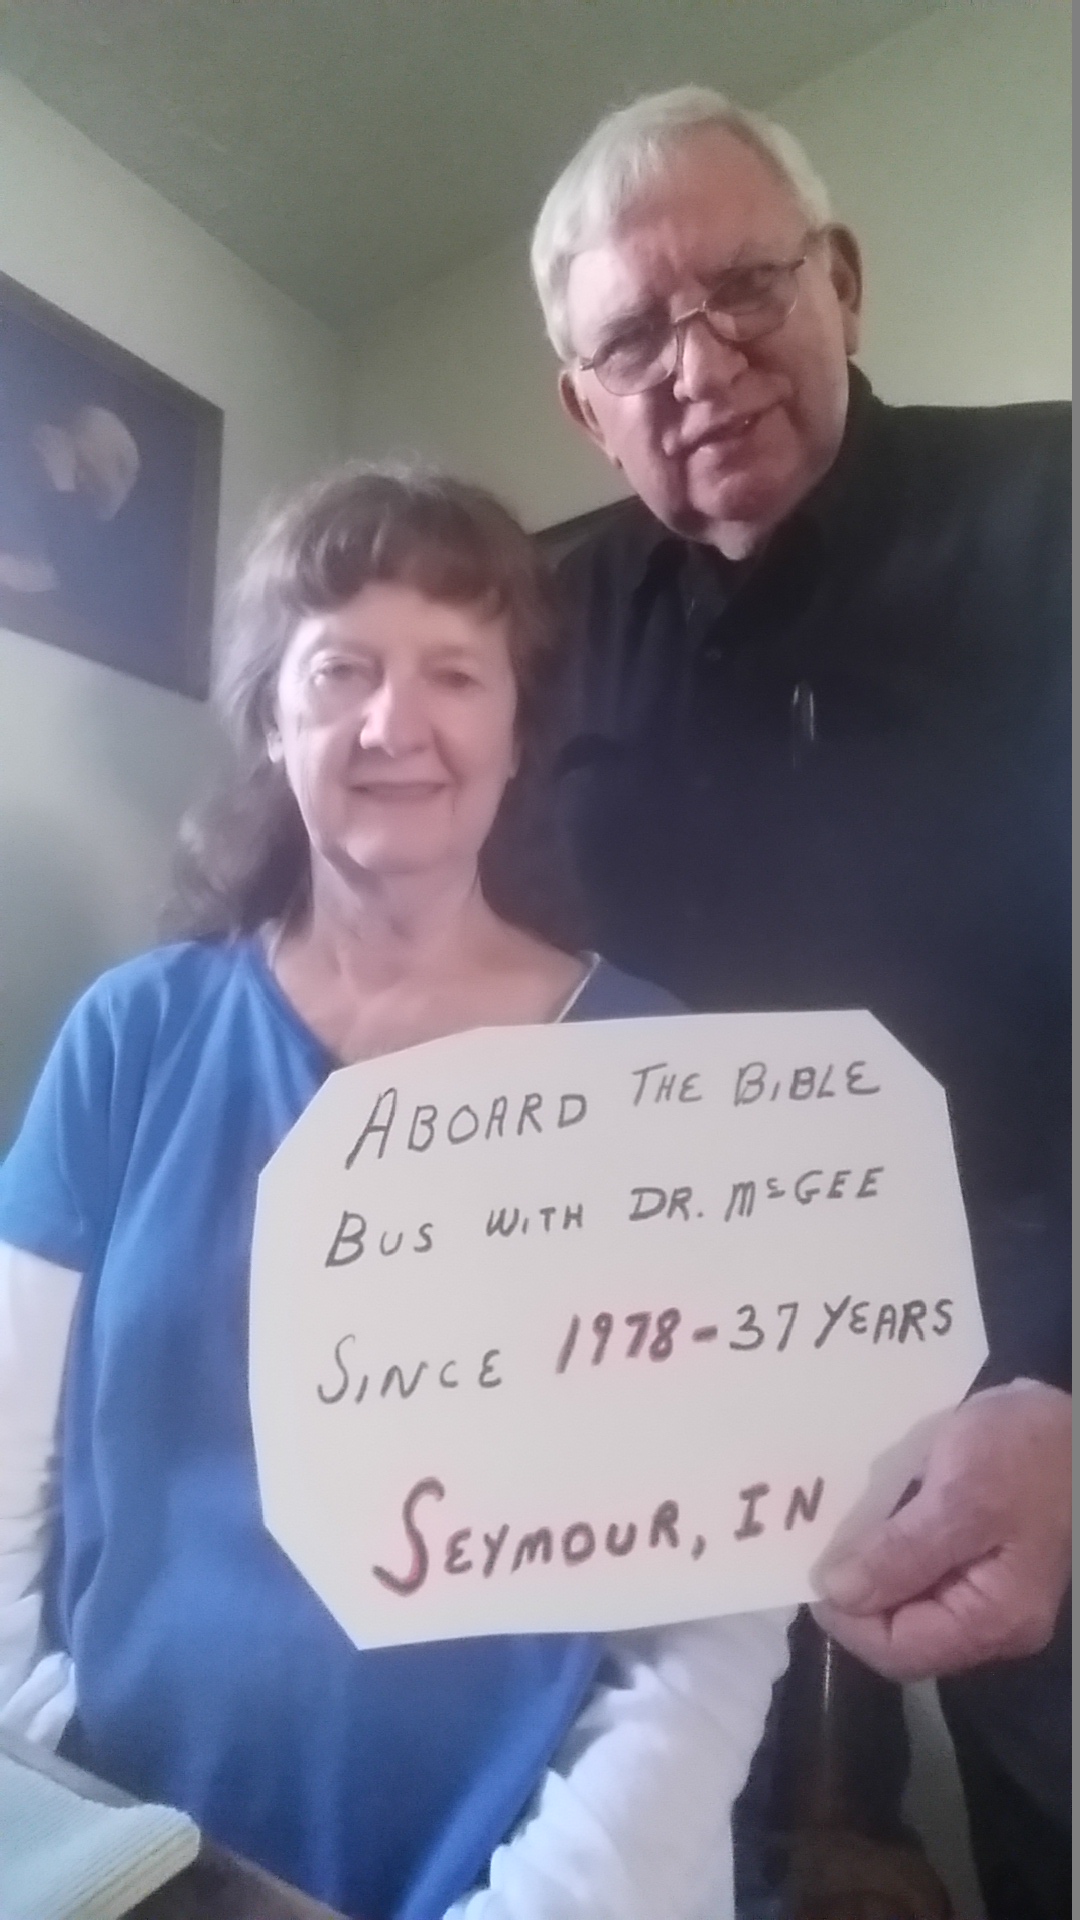 ABOARD THE BIBLE
BUS WITH DR. McGEE
SINCE 1978-37 YEARS
SEYMOUR, IN